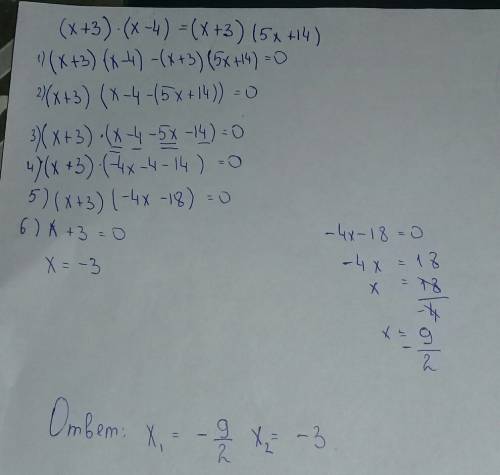 (x+3)·(x-4) = (x+3)(5x+14)
1) (x+3)(x-4) - (x+3)(5x+14) = 0
2) (x+3) (x-4-(5x+14)) = 0
3) (x+3)·(x-4-5x-14) = 0
4) (x+3)·(-4x-4-14) = 0
5) (x+3)(-4x-18) = 0
6) x+3 = 0
x = -3
-4x-18 = 0
-4x = 18
x = 18/-4
x = -9/2
Ответ: x₁ = -9/2 x₂ = -3